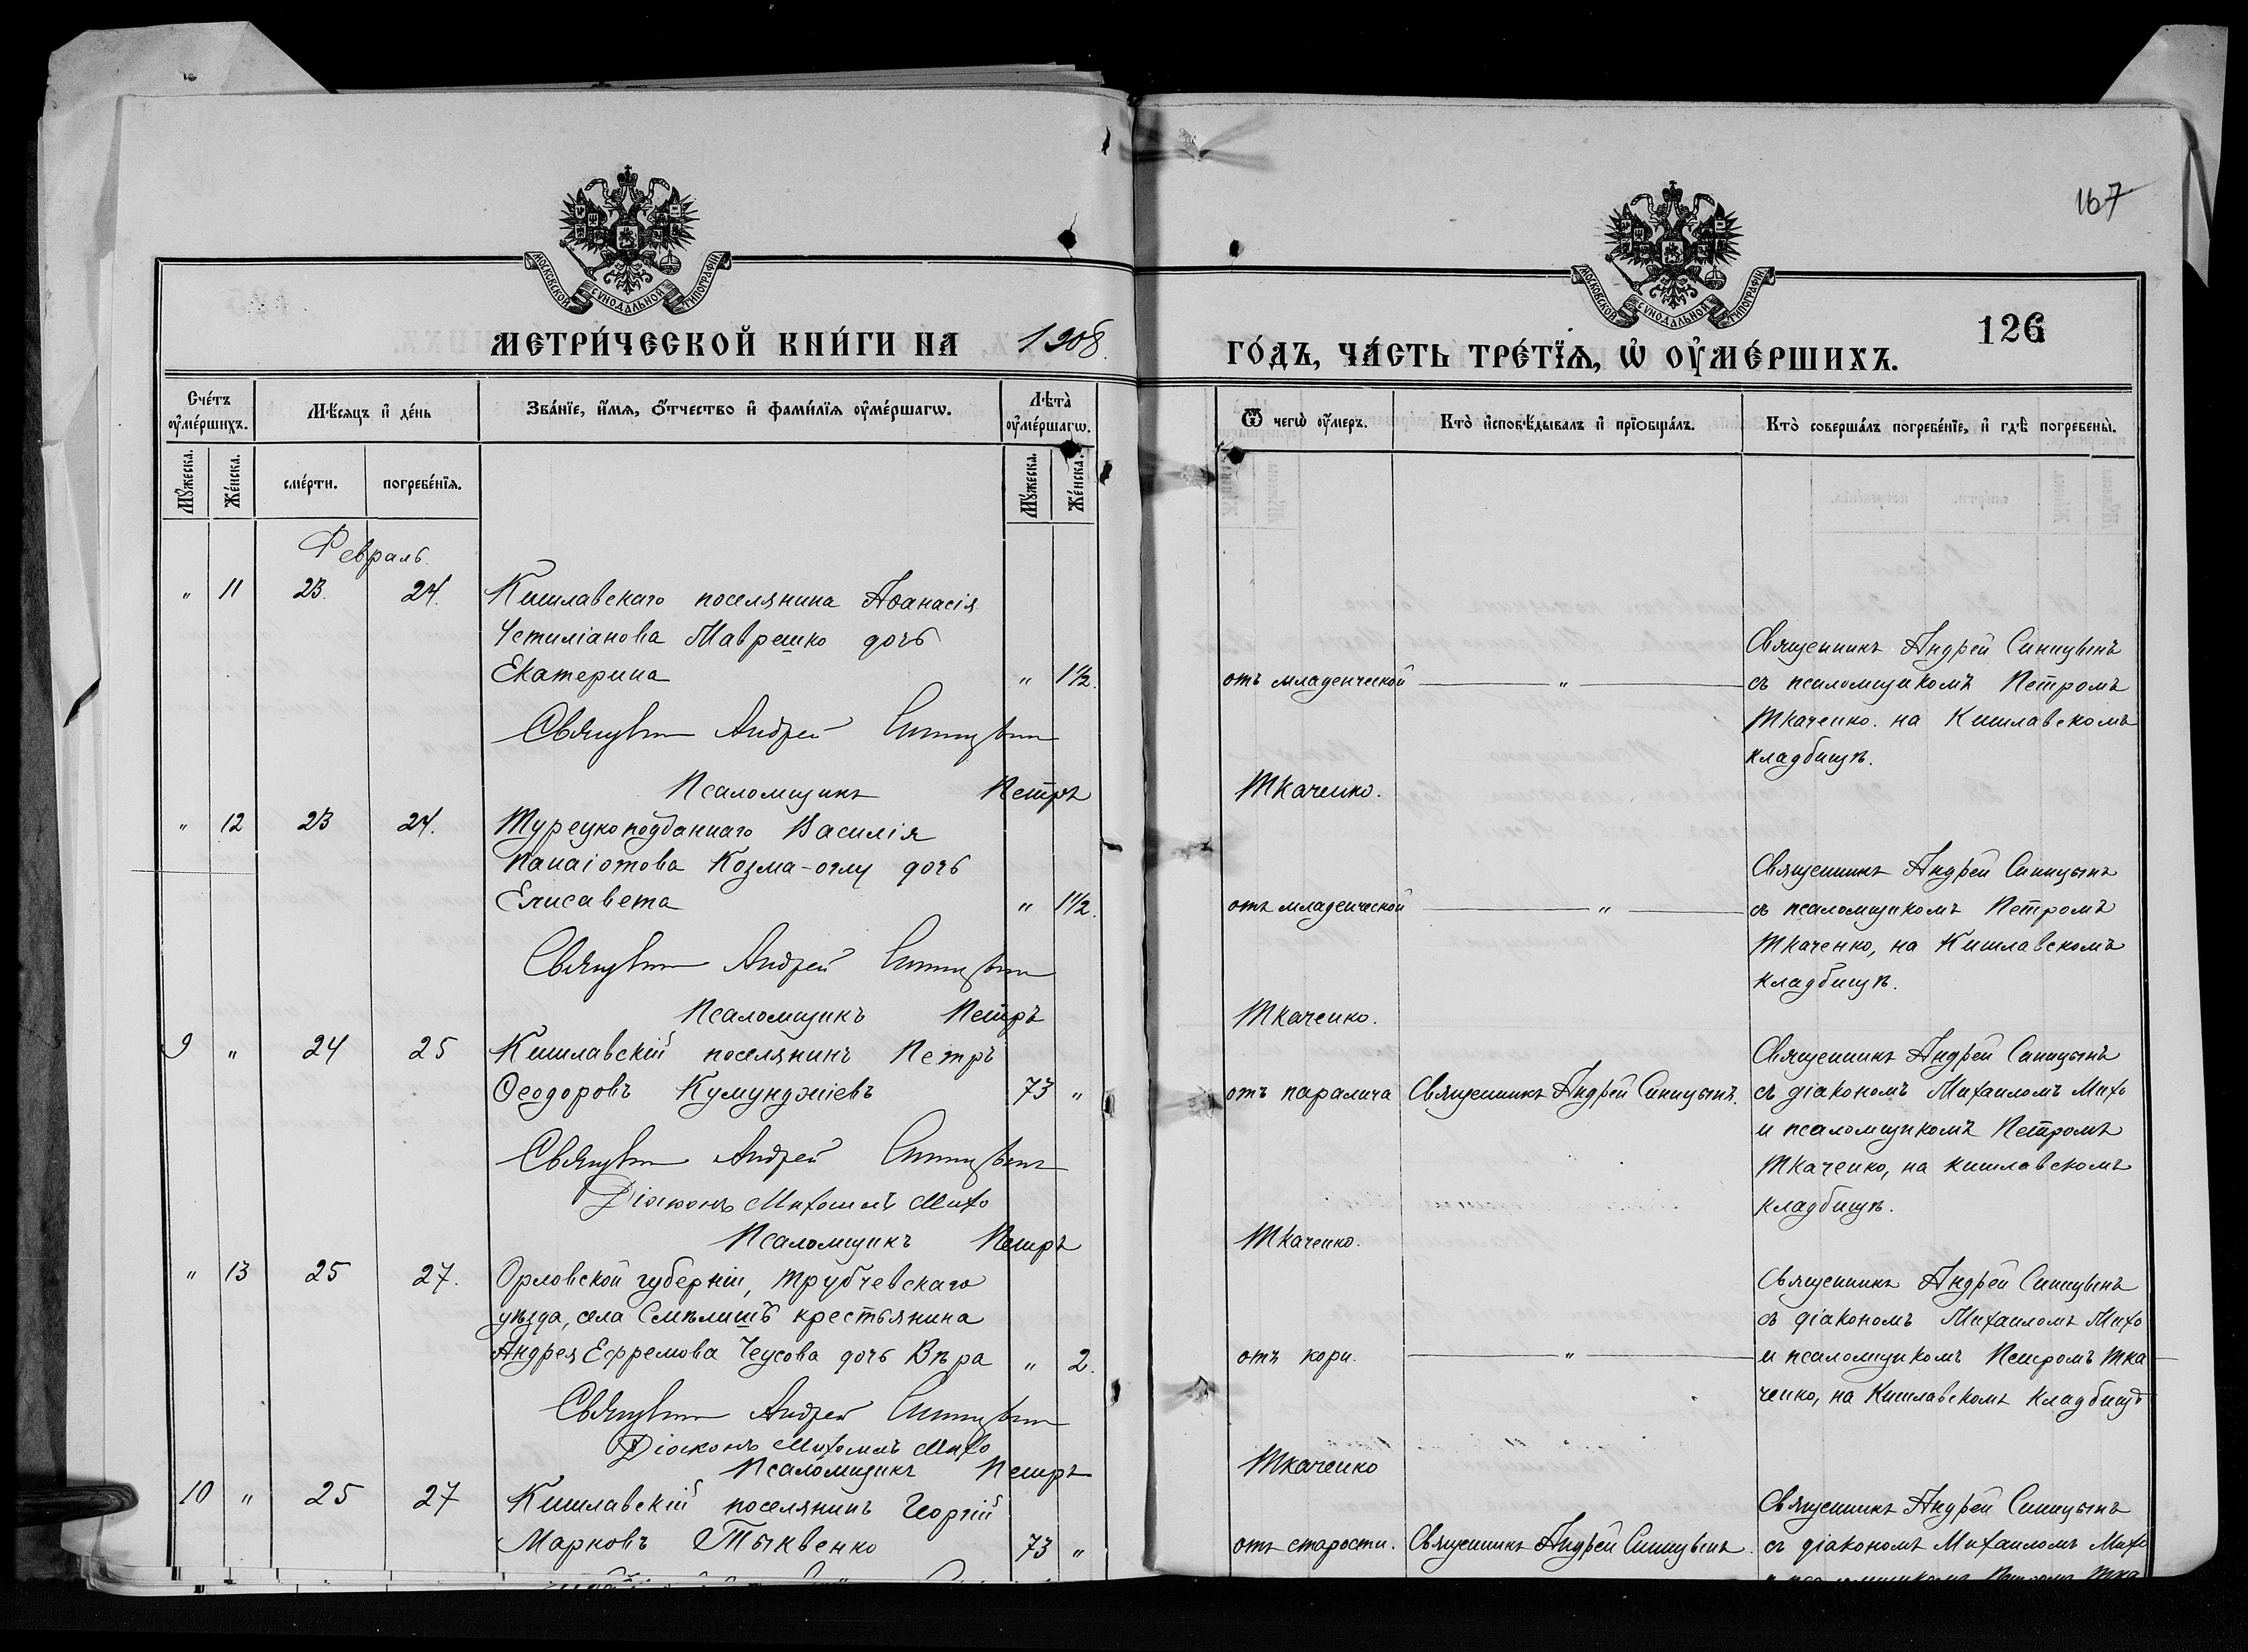 167
МОСКОВСКОЙ СУНОДАЛЬНОЙ ТИПОГРАФІИ
МОСКОВСКОЙ СУНОДАЛЬНОЙ ТИПОГРАФІИ
126
МЕТРИ́ЧЕСКОЙ КНИ́ГИ НА 1908.
ГО́ДЪ, ЧА́СТЬ ТРЕ́ТЇѦ, Ѡ҆ ОУ҆МЕ́РШИХЪ.
Сче́тъ оу҆ме́ршихъ.
Мѣ́сяцъ и҆ де́нь
Зва́нїе, и҆́мя, ѻ҆́тчество и҆ фами́лїя оу҆ме́ршагѡ.
Лѣ̑та̀ оу҆ме́ршагѡ.
Ѿ чегѡ̀ оу҆́меръ.
Кто̀ и҆сповѣ́дывалъ и҆ прїѻбща́лъ.
Кто̀ соверша́лъ погребе́нїе, и҆ гдѣ̀ погребены̀.
Мꙋ́жеска.
Же́нска.
сме́рти.
погребе́нїя.
Мꙋ́жеска.
Же́нска.
Февраль
" 11 23. 24. Кишлавскаго поселянина Аѳанасія
Четиліанова Маврешко дочь
Екатерина " 1½. отъ младенческой — " — Священникъ Андрей Синицынъ
съ псаломщикомъ Петромъ
Ткаченко. на Кишлавскомъ
кладбищѣ.
Священникъ Андрей Синицынъ
Псаломщикъ Петръ Ткаченко.
" 12 23 24. Турецкоподданнаго Василія
Панаіотова Козма-оглу дочь
Елисавета " 1½. отъ младенческой — " — Священникъ Андрей Синицынъ
съ псаломщикомъ Петромъ
Ткаченко, на Кишлавскомъ
кладбищѣ.
Священникъ Андрей Синицынъ
Псаломщикъ Петръ Ткаченко.
9 " 24 25 Кишлавскій поселянинъ Петръ
Ѳеодоровъ Кумунджіевъ 73 " отъ паралича Священникъ Андрей Синицынъ. Священникъ Андрей Синицынъ
съ діакономъ Михаиломъ Михо
и псаломщикомъ Петромъ
Ткаченко, на кишлавскомъ
кладбищѣ.
Священникъ Андрей Синицынъ
Діаконъ Михаилъ Михо
Псаломщикъ Петръ Ткаченко.
" 13 25 27. Орловской губерніи, трубчевскаго
уѣзда, села Смѣлишъ крестьянина
Андрея Ефремова Чеусова дочь Вѣра " 2. отъ кори. — " — Священникъ Андрей Синицынъ
съ діакономъ Михаиломъ Михо
и псаломщикомъ Петромъ Тка
ченко, на Кишлавскомъ кладбищѣ
Священникъ Андрей Синицынъ
Діаконъ Михаилъ Михо
Псаломщикъ Петръ Ткаченко
10 " 25 27 Кишлавскій поселянинъ Георгій
Марковъ Тыквенко 73 " отъ старости. Священникъ Андрей Синицынъ. Священникъ Андрей Синицынъ
съ діакономъ Михаиломъ Михо